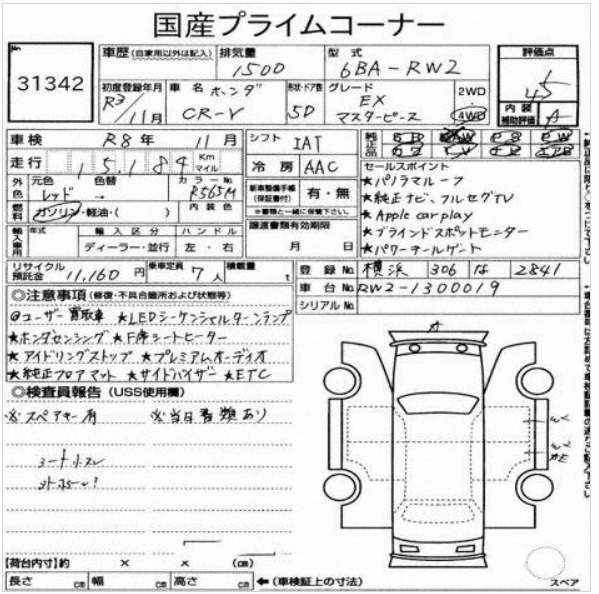 国産プライムコーナー
No
31342
車歴 (自家用以外は記入) 排気量 1500 型式 6BA-RW2 評価点
初度登録年月 R3/11月 車名 ホンダ CR-V 形状・ドア数 5D グレード EX マスターピース 2WD 4WD
4.5
内装補助評価 A
車検 R8年 11月 シフト IAT 純正品
走行 15,184 Km マイル 冷房 AAC
外色 元色 レッド 色替 → カラーNo R565M
新車整備手帳(保証書付) 有・無
※書類と一緒に保管下さい。
燃料 ガソリン・軽油・( ) 内装色
譲渡書類有効期限 月 日
輸入車用 年式 輸入区分 ディーラー・並行 ハンドル 左・右
セールスポイント
★パノラマルーフ
★純正ナビ、フルセグTV
★Apple carplay
★ブラインドスポットモニター
★パワーテールゲート
リサイクル預託金 11,160円 乗車定員 7人 積載量 t
登録No 横浜 306 な 2841
車台No RW2-1300019
シリアルNo
◎注意事項 (修復・不具合箇所および状態等)
@ユーザー買取車 ★LEDシーケンシャルターンランプ
★ホンダセンシング ★F席シートヒーター
★アイドリングストップ ★プレミアムオーディオ
★純正フロアマット ★サイドバイザー ★ETC
◎検査員報告 (USS使用欄)
※スペアキー有 ※当日書類あり
シートスレ
A
【荷台内寸】約 × × (cm)
長さ cm 幅 cm 高さ cm ←(車検証上の寸法)
スペア